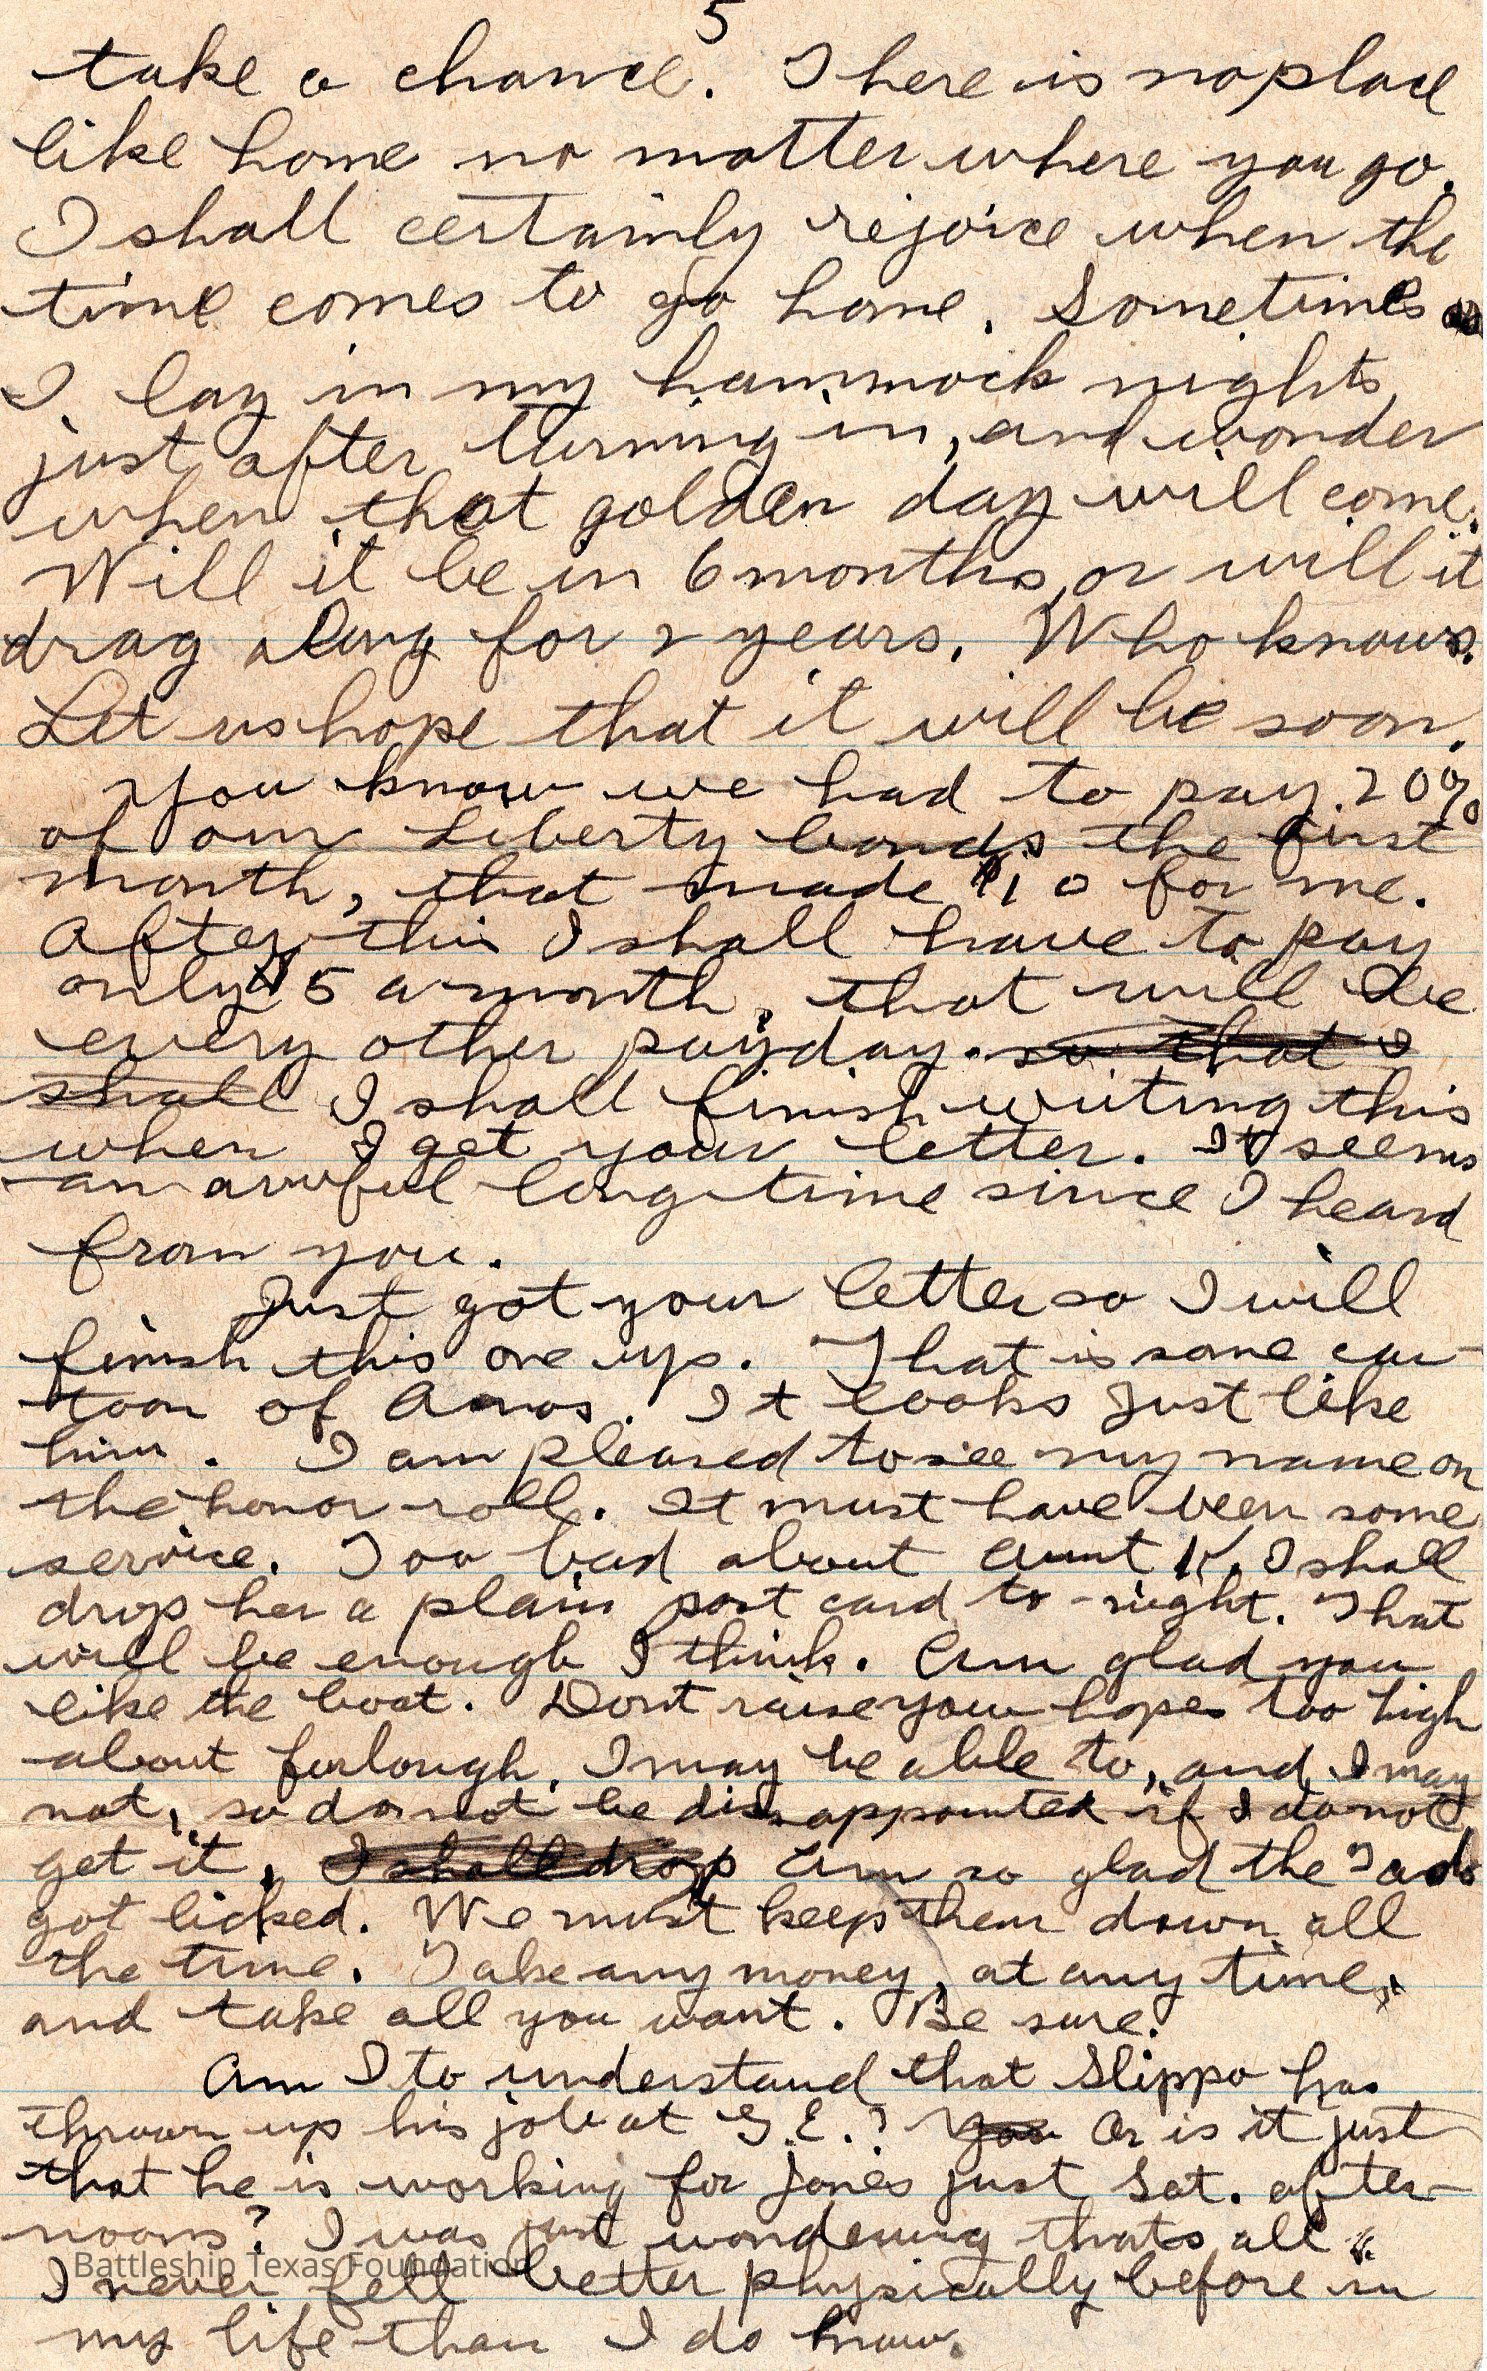 5
take a chance. There is no place
like home no matter where you go.
I shall certainly rejoice when the
time comes to go home. Sometimes
I lay in my hammock nights,
just after turning in, and wonder
when that golden day will come.
Will it be in 6 months, or will it
drag along for 2 years. Who knows.
Let us hope that it will be soon.
You know we had to pay 20%
of our Liberty bonds the first
month, that made $10 for me.
After this I shall have to pay
only $5 a month, that will be
every other payday. so that I
shall I shall finish writing this
when I get your letter. It seems
an awful long time since I heard
from you.
Just got your letter so I will
finish this one up. That is some car-
toon of Amos. It looks just like
him. I am pleased to see my name on
the honor roll. It must have been some
service. Too bad about Aunt K. I shall
drop her a plain post card to-night. That
will be enough I think. Am glad you
like the boat. Dont raise your hopes too high
about furlough. I may be able to, and I may
not, so do not be disappointed if I do not
get it. I shall drop Am so glad the Tads
got licked. We must keep them down all
the time. Take any money, at any time,
and take all you want. Be sure.
Am I to understand that Slippo has
thrown up his job at G.E.? You Or is it just
that he is working for Jones just Sat. after-
noons? I was just wondering thats all.
I never felt better physically before in
my life than I do know.
Battleship Texas Foundation